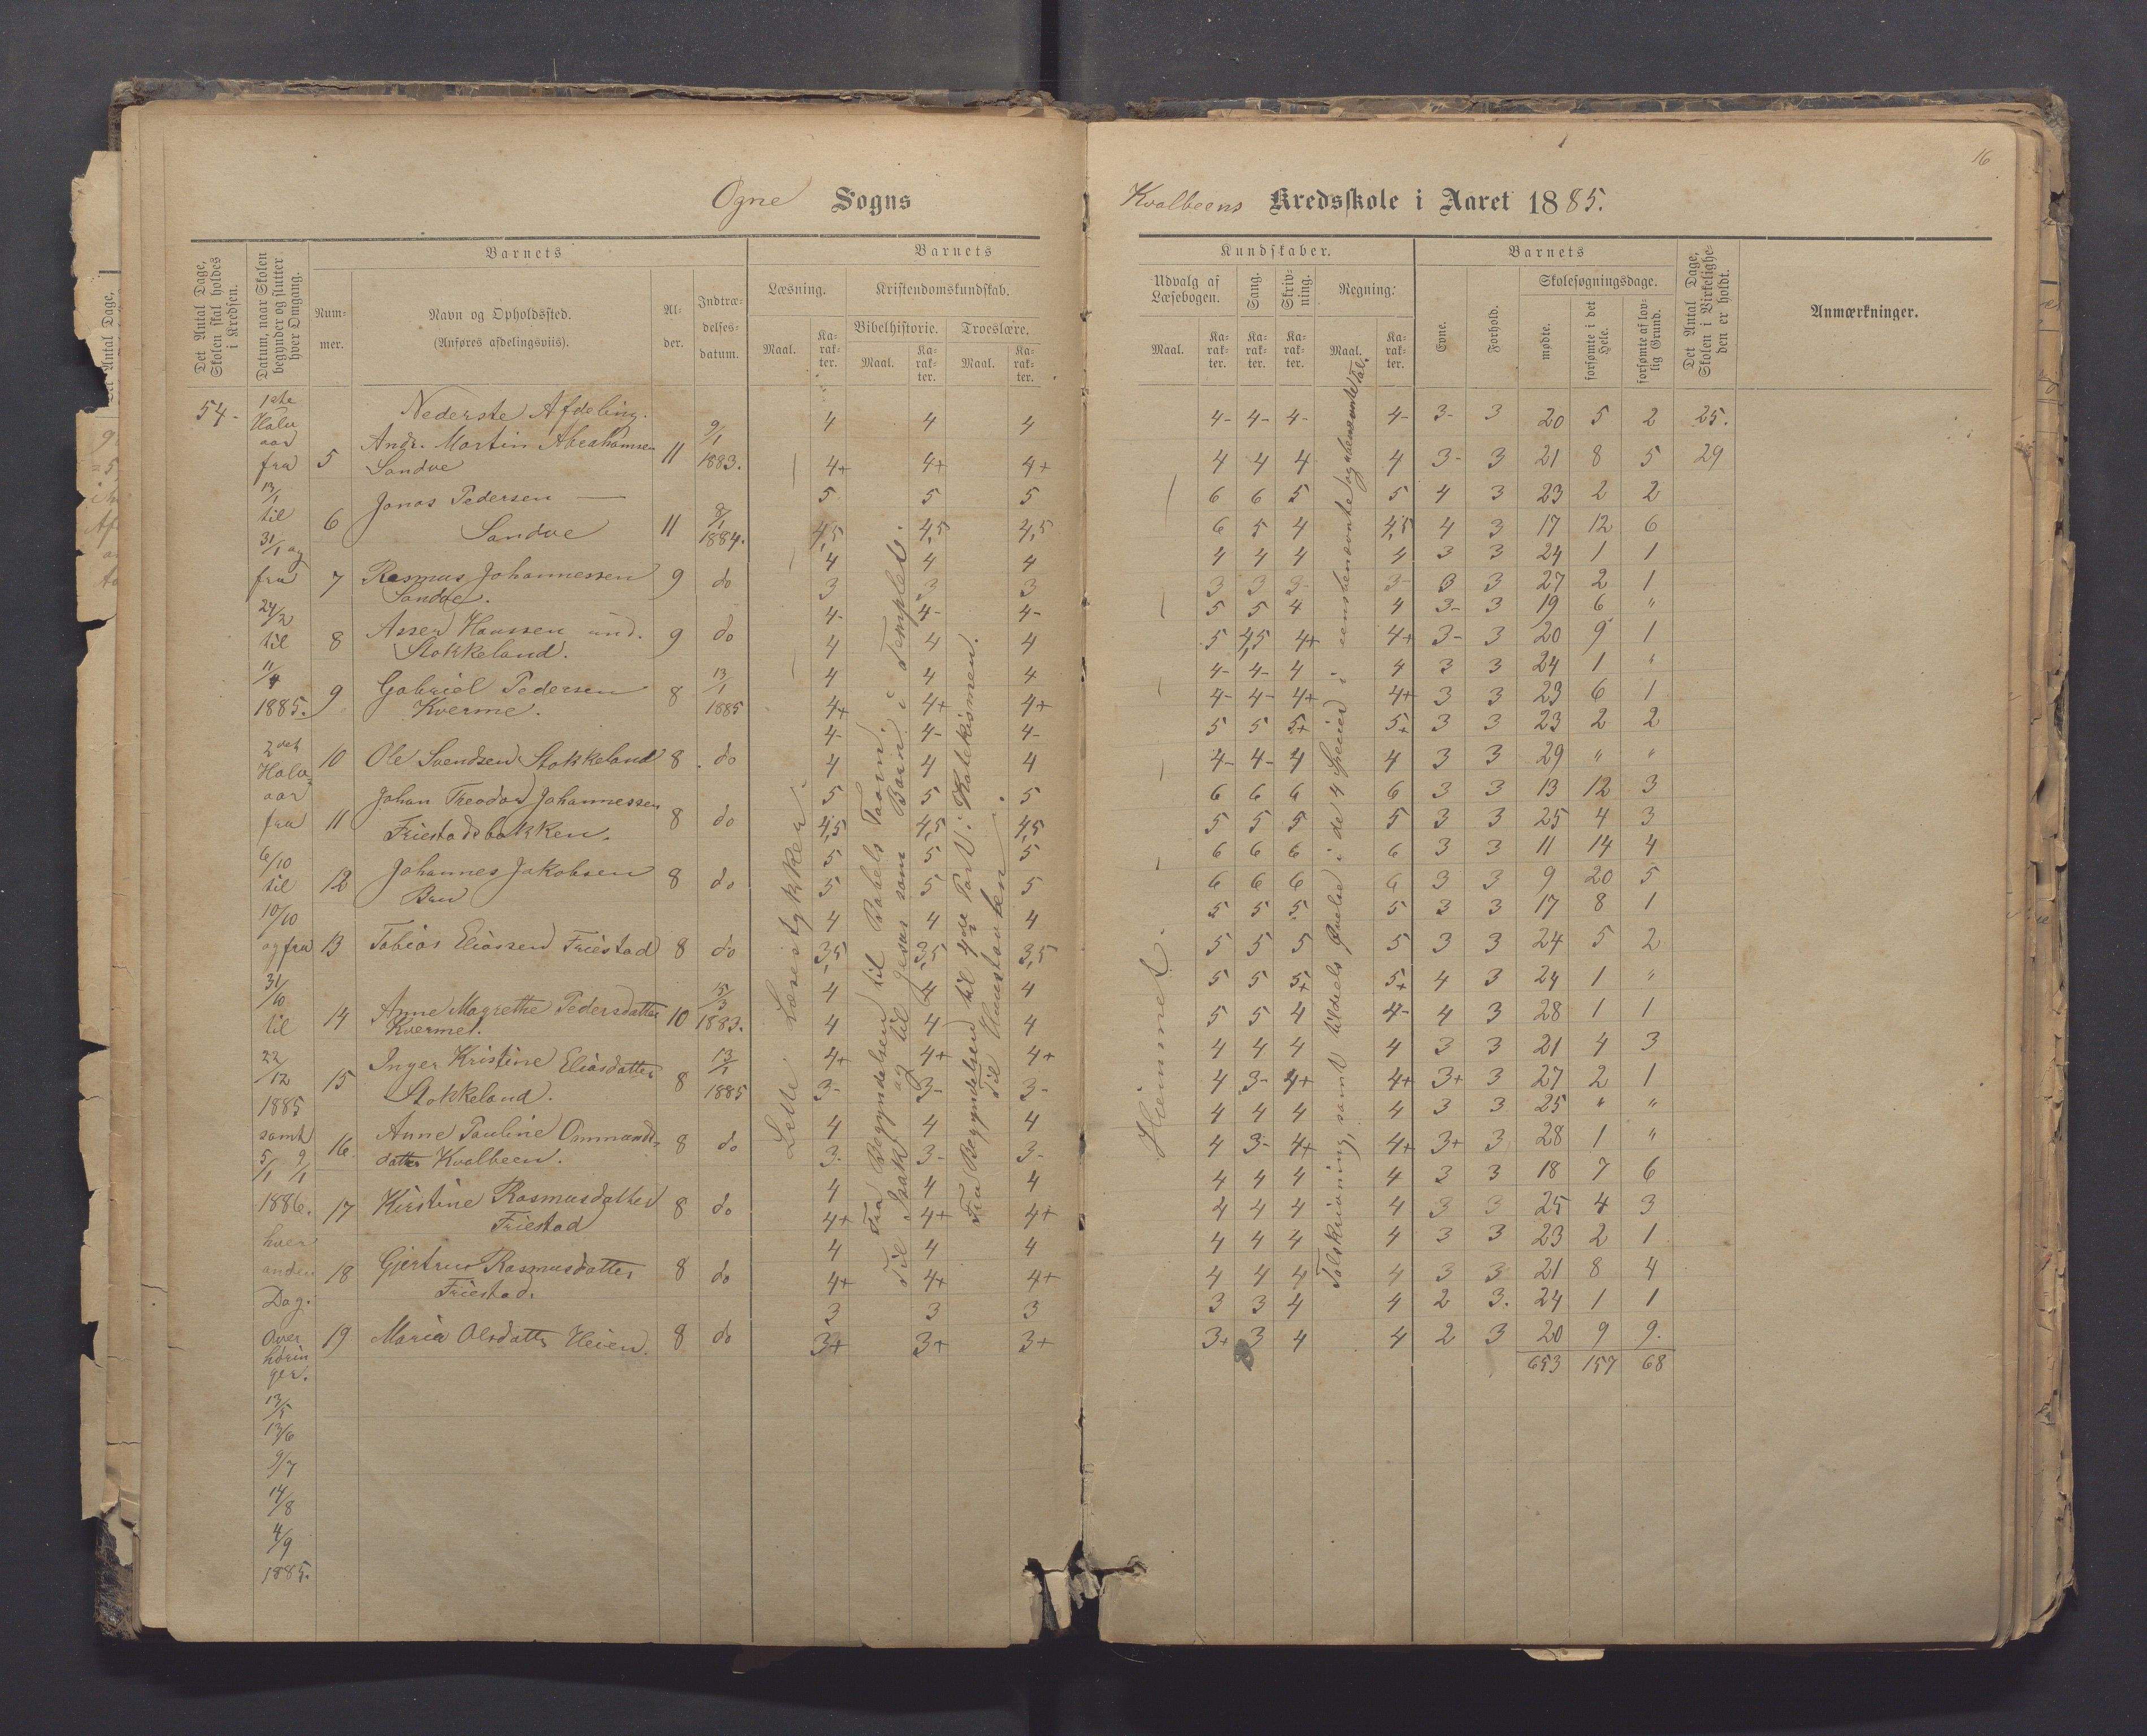 16
Ogne Sogns
Kvalbeens Kredsskole i Aaret 1885.
Det Antal Dage, Skolen skal holdes i Kredsen.
Datum, naar Skolen begynder og slutter hver Omgang.
Barnets
Num-
mer.
Navn og Opholdssted.
(Anføres afdelingsviis).
Al-
der.
Indtræ-
delses-
datum.
Barnets
Læsning.
Maal.
Ka-
rak-
ter.
Kristendomskundskab.
Bibelhistorie.
Maal.
Ka-
rak-
ter.
Troeslære.
Maal.
Ka-
rak-
ter.
Kundskaber.
Udvalg af
Læsebogen.
Maal.
Ka-
rak-
ter.
Sang.
Ka-
rak-
ter.
Skriv-
ning.
Ka-
rak-
ter.
Regning.
Maal.
Ka-
rak-
ter.
Barnets
Evne.
Forhold.
Skolesøgningsdage.
mødte.
forsømte i det Hele.
forsømte af lov-
lig Grund.
Det Antal Dage, Skolen i Virkelighe-
den er holdt.
Anmærkninger.
54-
1ste
Halv
aar
fra
13/1
til
31/1 og
fra
24/2
til
11/4
1885.
2det
Halv
aar
fra
6/10
til
10/10
og fra
31/10
til
22/12
1885
samt
5/1 9/1
1886.
hver
anden
Dag.
Over
hørin
ger.
13/5
13/6
9/7
14/8
4/9
1885.
Nederste Afdeling.
5 Andr. Martin Abrahamsen Sandve 11 9/1 1883.
6 Jonas Pedersen — Sandve 11 8/1 1884.
7 Rasmus Johannessen Sandve. 9 do
8 Asser Hanssen und. Stokkeland. 9 do
9 Gabriel Pedersen Kverme. 8 13/1 1885
10 Ole Svendsen Stokkeland 8 do
11 Johan Theodor Johannessen Friestadbakken. 8 do
12 Johannes Jakobsen 8 do
13 Tobias Eliassen Friestad 8 do
14 Anne Magrethe Pedersdatter Kvermet. 10 15/3 1883.
15 Inger Kristine Eliasdatter Stokkeland. 8 13/1 1885
16 Anne Pauline Ommunds-
datter Kvalbeen. 8 do
17 Kirstine Rasmusdatter Friestad 8 do
18 Gjertrud Rasmusdatter Friestad. 8 do
19 Maria Olsdatter Heien. 8 do
Lette Læsestykker.
Fra Begyndelsen til Babels Taarn.
Til Isak og til Jesus som Barn i Templet.
Fra Begyndelsen til 4de Part i Katekismen.
Til Huustavlen.
Hjemmet.
Talskrivning, samt tildels Øvelse i de 4 Specier i eensbenævnte og ubenævnte Tal.
4 4 4 4- 4- 4- 4- 3- 3 20 5 2 25.
4+ 4+ 4+ 4 4 4 4 3- 3 21 8 5 29
5 5 5 6 6 5 5 4 3 23 2 2
4,5 4,5 4,5 6 5 4 4,5 4 3 17 12 6
4 4 4 4 4 4 4 3 3 24 1 1
3 3 3 3 3 3- 3- 3 3 27 2 1
4- 4- 4- 5 5 4 4 3- 3 19 6 "
4 4 4 5 4,5 4+ 4+ 3- 3 20 9 1
4 4 4 4- 4- 4 4 3 3 24 1 "
4+ 4+ 4+ 4- 4- 4+ 4+ 3 3 23 6 1
4- 4- 4- 5 5 5+ 5+ 3 3 23 2 2
4 4 4 4- 4- 4 4 3 3 29 " "
5 5 5 6 6 6 6 3 3 13 12 3
4,5 4,5 4,5 5 5 5 5 3 3 25 4 3
5 5 5 6 6 6 6 3 3 11 14 4
5 5 5 6 6 6 6 3 3 9 20 5
4 4 4 5 5 5 5 3 3 17 8 1
3,5 3,5 3,5 5 5 5 5 3 3 24 5 2
4 4 4 5 5 5+ 5+ 4 3 24 1 "
4 4 4 5 5 4 4- 4 3 28 1 1
4+ 4+ 4+ 4 4 4 4 3 3 21 4 3
3- 3- 3- 4 3- 4+ 4+ 3+ 3 27 2 1
4 4 4 4 4 4 4 3 3 25 " "
3- 3- 3- 4 3- 4+ 4+ 3+ 3 28 1 "
4 4 4 4 4 4 4 3 3 18 7 6
4+ 4+ 4+ 4 4 4 4 3 3 25 4 3
4 4 4 4 4 4 4 3 3 23 2 1
4+ 4+ 4+ 4 4 4 4 3 3 21 8 4
3 3 3 3 3 4 4 2 3. 24 1 1
3+ 3+ 3+ 3+ 3 4 4 2 3 20 9 9.
653 157 68